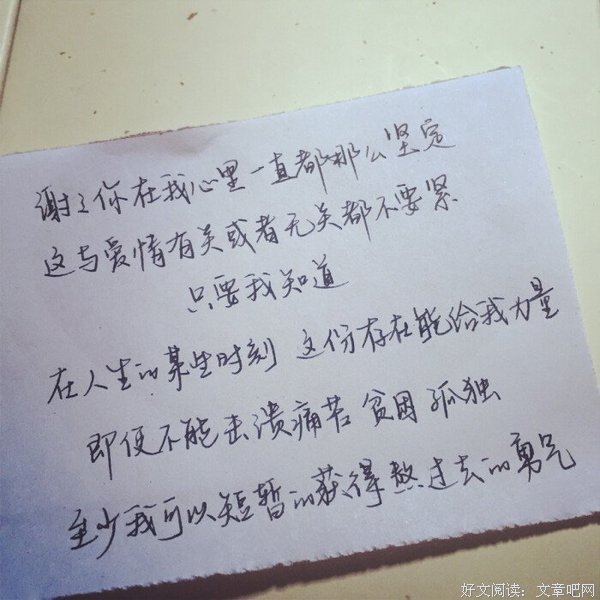 谢谢你在我心里一直都那么坚定
这与爱情有关或者无关都不要紧
只要我知道
在人生的某些时刻 这份存在能给我力量
即便不能击溃痛苦 贫困 孤独
至少我可以短暂的获得熬过去的勇气
好文阅读：文章吧网